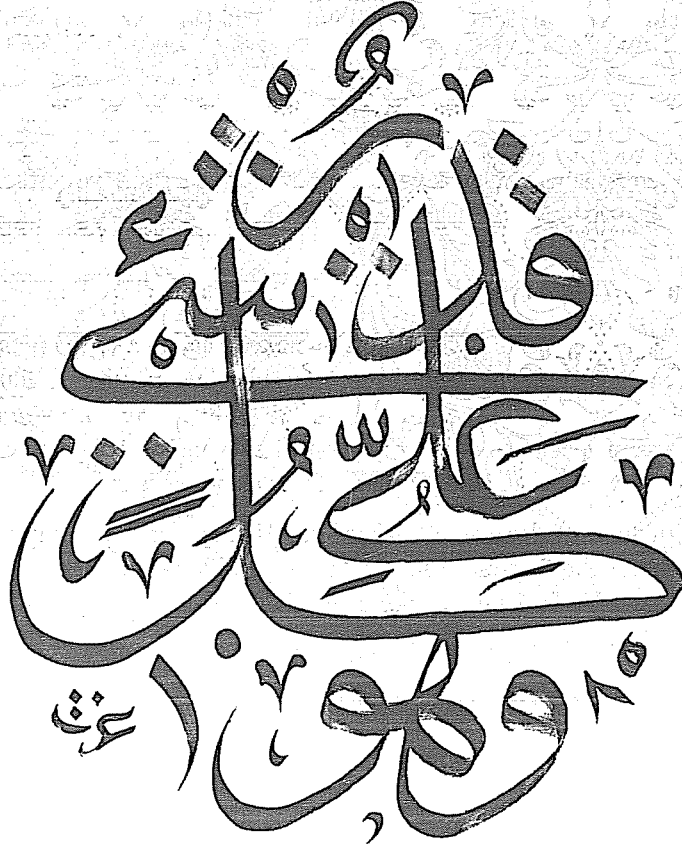 وهو على كل شيء قدير
عزت